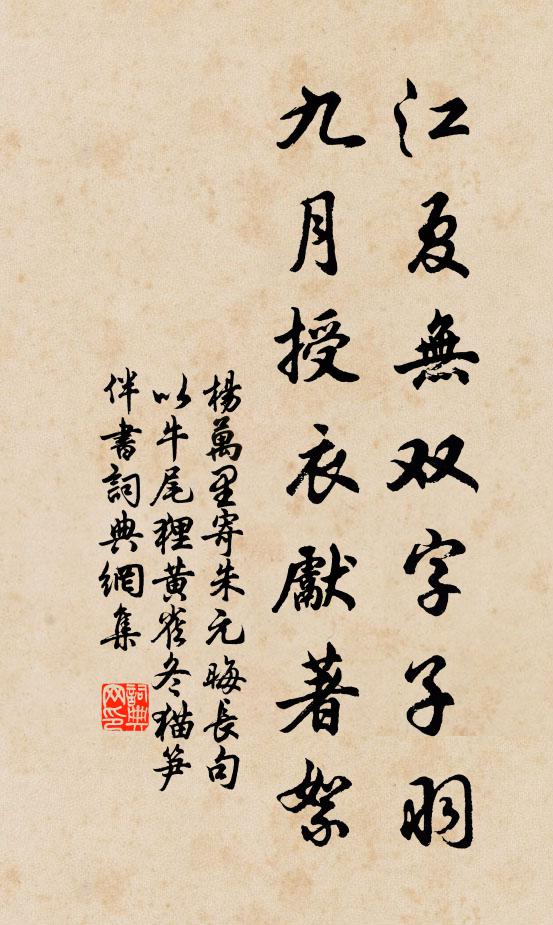 江夏無双字子羽
九月授衣獻著絮
楊萬里寄朱元晦長句
以牛尾狸黄雀冬猫笋
伴書詞典網集
詞典網印